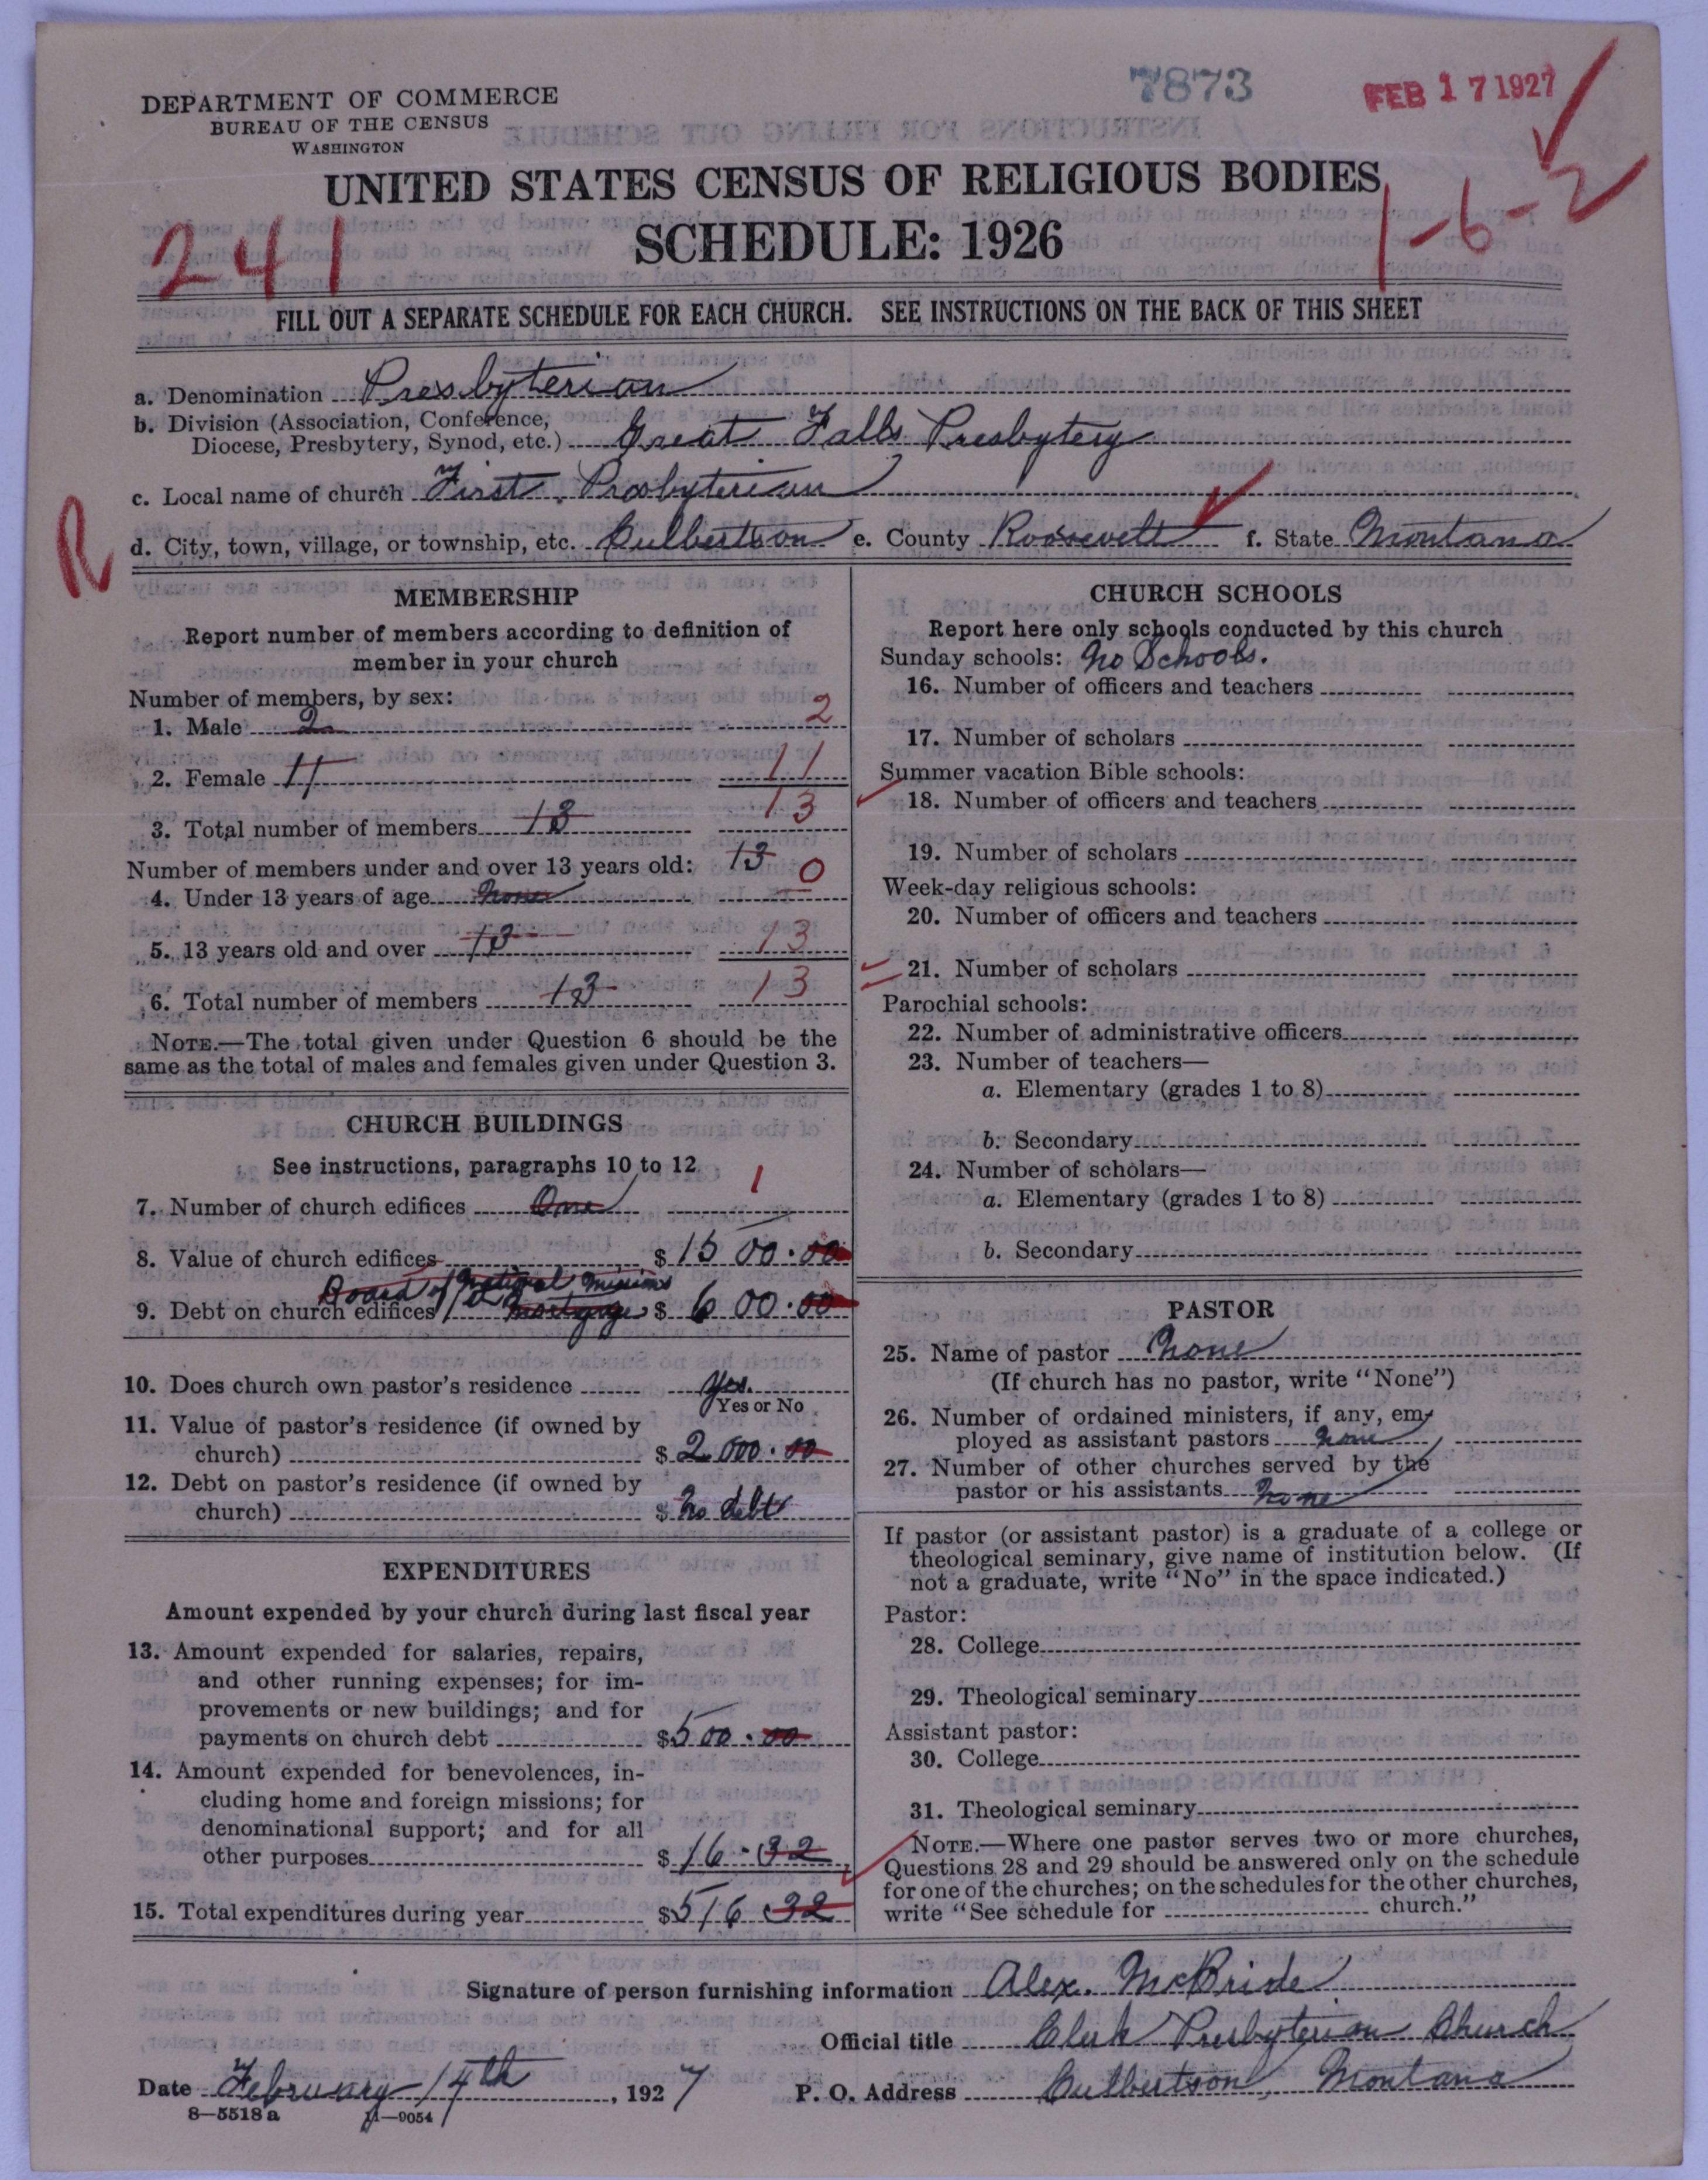 DEPARTMENT OF COMMERCE
BUREAU OF THE CENSUS
WASHINGTON
7873
FEB 17 1927
UNITED STATES CENSUS OF RELIGIOUS BODIES
SCHEDULE: 1926
241
1-6-2
FILL OUT A SEPARATE SCHEDULE FOR EACH CHURCH. SEE INSTRUCTIONS ON THE BACK OF THIS SHEET
a. Denomination Presbyterian
b. Division (Association, Conference,
Diocese, Presbytery, Synod, etc.) Great Falls Presbytery
c. Local name of church First Presbyterian
R
d. City, town, village, or township, etc. Culbertson e. County Roosevelt f. State Montana
MEMBERSHIP
Report number of members according to definition of
member in your church
Number of members, by sex:
1. Male 2 2
2. Female 11 11
3. Total number of members 13 13
Number of members under and over 13 years old: 13
4. Under 13 years of age none 0
5. 13 years old and over 13 13
6. Total number of members 13 13
NOTE.—The total given under Question 6 should be the
same as the total of males and females given under Question 3.
CHURCH BUILDINGS
See instructions, paragraphs 10 to 12
7. Number of church edifices One 1
8. Value of church edifices $1500.00
Board of National Missions
9. Debt on church edifices mortgage $600.00
10. Does church own pastor's residence Yes.
Yes or No
11. Value of pastor's residence (if owned by
church) $2000.00
12. Debt on pastor's residence (if owned by
church) $ No debt
EXPENDITURES
Amount expended by your church during last fiscal year
13. Amount expended for salaries, repairs,
and other running expenses; for im-
provements or new buildings; and for
payments on church debt $500.00
14. Amount expended for benevolences, in-
cluding home and foreign missions; for
denominational support; and for all
other purposes $16.32
15. Total expenditures during year $516 32
CHURCH SCHOOLS
Report here only schools conducted by this church
Sunday schools: No Schools.
16. Number of officers and teachers
17. Number of scholars
Summer vacation Bible schools:
18. Number of officers and teachers
19. Number of scholars
Week-day religious schools:
20. Number of officers and teachers
21. Number of scholars
Parochial schools:
22. Number of administrative officers
23. Number of teachers—
a. Elementary (grades 1 to 8)
b. Secondary
24. Number of scholars—
a. Elementary (grades 1 to 8)
b. Secondary
PASTOR
25. Name of pastor None
(If church has no pastor, write "None")
26. Number of ordained ministers, if any, em-
ployed as assistant pastors none
27. Number of other churches served by the
pastor or his assistants none
If pastor (or assistant pastor) is a graduate of a college or
theological seminary, give name of institution below. (If
not a graduate, write "No" in the space indicated.)
Pastor:
28. College
29. Theological seminary
Assistant pastor:
30. College
31. Theological seminary
NOTE.—Where one pastor serves two or more churches,
Questions 28 and 29 should be answered only on the schedule
for one of the churches; on the schedules for the other churches,
write "See schedule for church."
Signature of person furnishing information Alex. McBride
Official title Clerk Presbyterian Church
Date February 14th, 1927 P. O. Address Culbertson, Montana
8-5518 a 11-9054